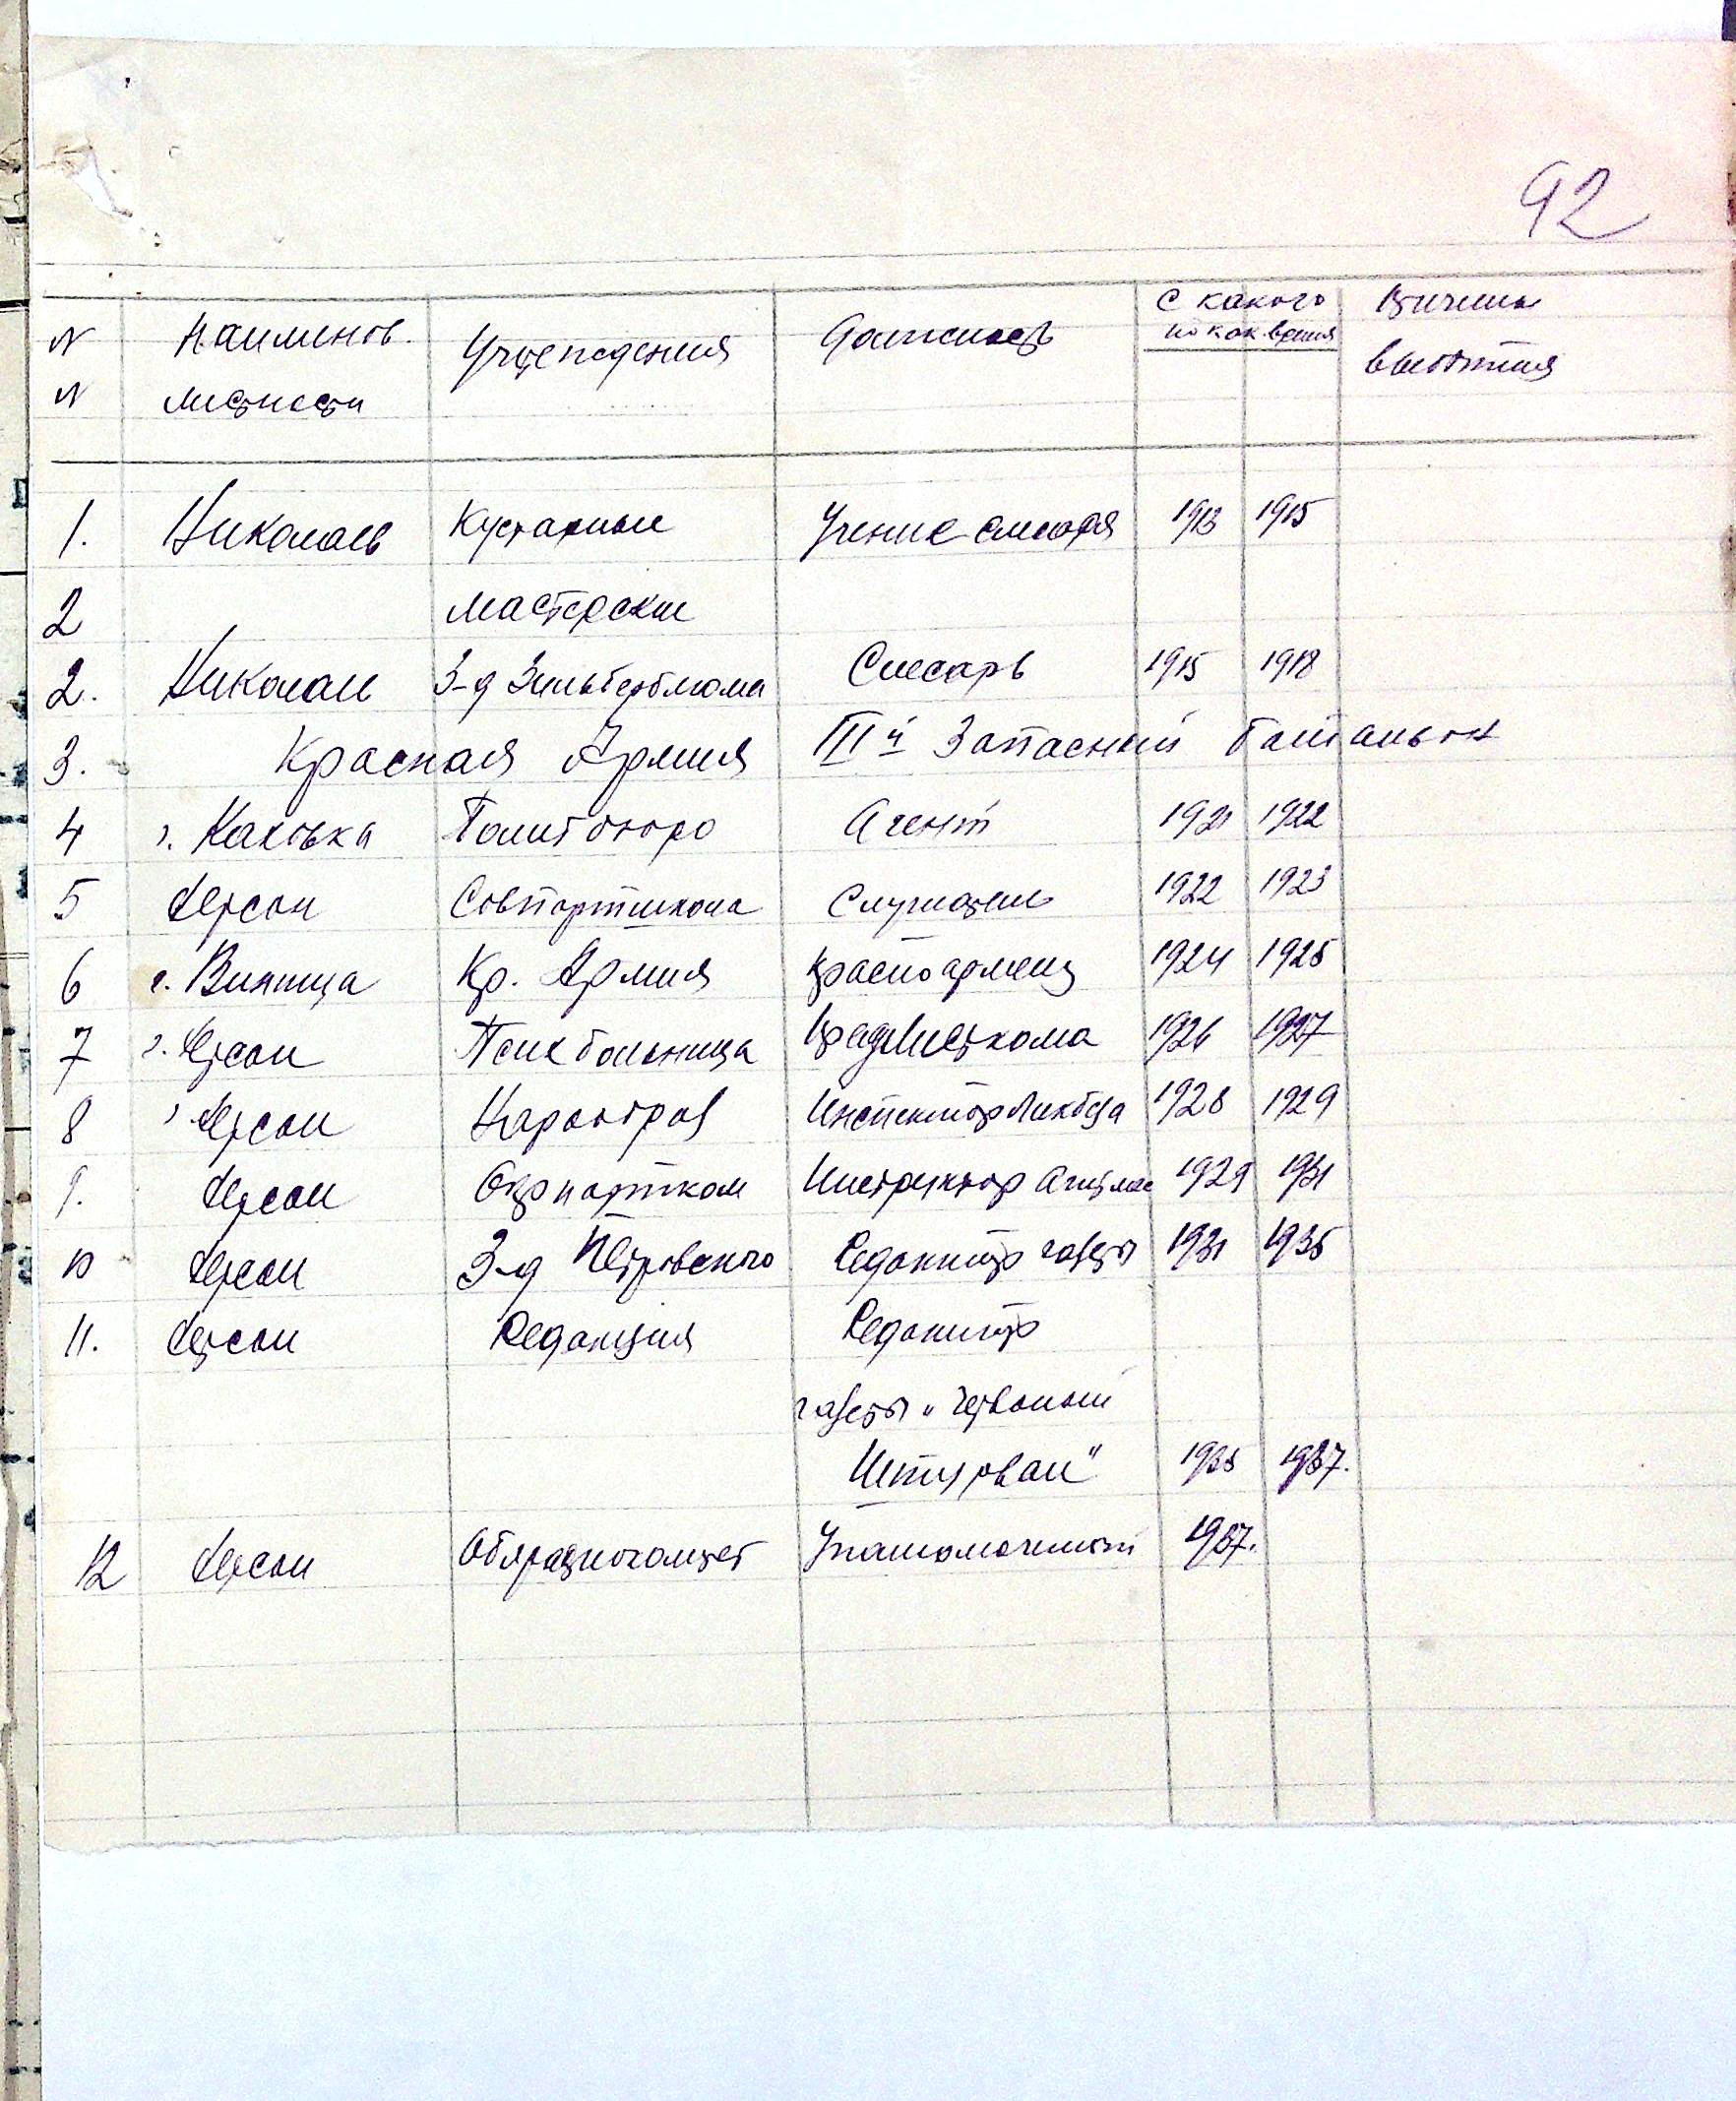 92
N Наименов. Учреждения Должность С какого Причины
N местности по как. время выбытия
1. Николаев Кустарные Ученик слесаря 1913 1915
2 мастерские
2. Николаев З-д Зильберблюма Слесарь 1915 1918
3. Красная Армия III й Запасный батальон
4 г. Каховка Политбюро Агент 1921 1922
5 Херсон Совпартшкола Слушатель 1922 1923
6 г. Винница Кр. Армия Красноармеец 1924 1925
7 г. Херсон Псих больница Пред Месткома 1926 1927
8 г. Херсон Наробраз Инспектор Ликбеза 1928 1929
9. Херсон Окрпартком Инструктор Агитмас 1929 1931
10 Херсон З-д Петровского Редактор газеты 1931 1935
11. Херсон Редакция Редактор
газеты „Червоный
Штурвал" 1935 1937.
12 Херсон Уполномоченный 1937.